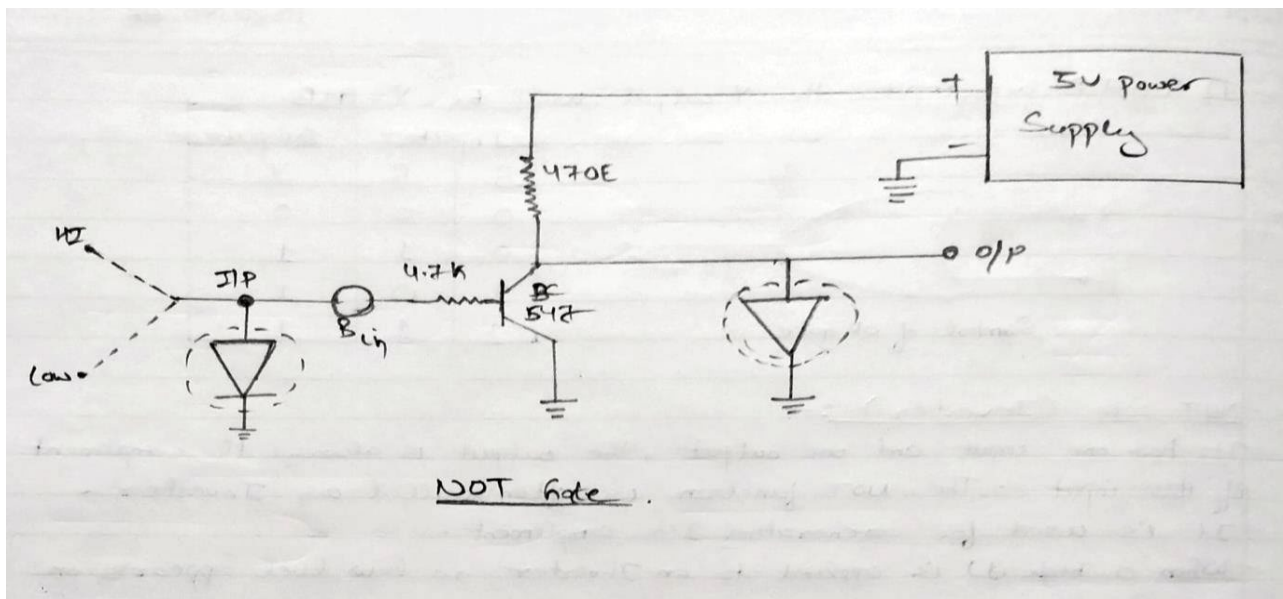 5V power
Supply
+
-
470E
HI
I/P
4.7K
BC
547
O/P
Bin
Low
NOT Gate.